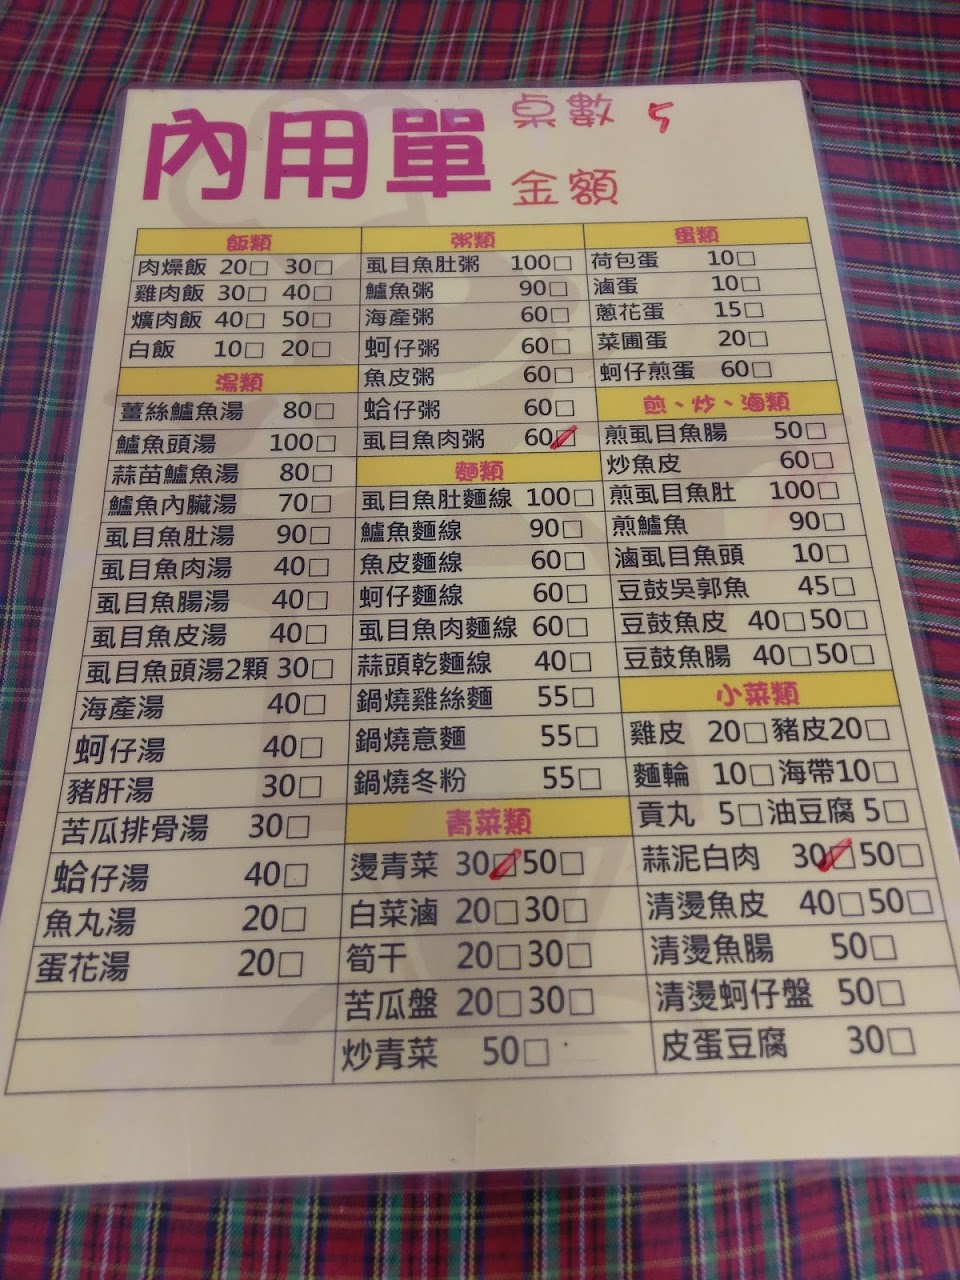 內用單
桌數 5
金額
飯類
肉燥飯 20□ 30□
雞肉飯 30□ 40□
爌肉飯 40□ 50□
白飯 10□ 20□
湯類
薑絲鱸魚湯 80□
鱸魚頭湯 100□
蒜苗鱸魚湯 80□
鱸魚內臟湯 70□
虱目魚肚湯 90□
虱目魚肉湯 40□
虱目魚腸湯 40□
虱目魚皮湯 40□
虱目魚頭湯2顆 30□
海產湯 40□
蚵仔湯 40□
豬肝湯 30□
苦瓜排骨湯 30□
蛤仔湯 40□
魚丸湯 20□
蛋花湯 20□
粥類
虱目魚肚粥 100□
鱸魚粥 90□
海產粥 60□
蚵仔粥 60□
魚皮粥 60□
蛤仔粥 60□
虱目魚肉粥 60□
麵類
虱目魚肚麵線 100□
鱸魚麵線 90□
魚皮麵線 60□
蚵仔麵線 60□
虱目魚肉麵線 60□
蒜頭乾麵線 40□
鍋燒雞絲麵 55□
鍋燒意麵 55□
鍋燒冬粉 55□
青菜類
燙青菜 30□50□
白菜滷 20□30□
筍干 20□30□
苦瓜盤 20□30□
炒青菜 50□
蛋類
荷包蛋 10□
滷蛋 10□
蔥花蛋 15□
菜圃蛋 20□
蚵仔煎蛋 60□
煎、炒、滷類
煎虱目魚腸 50□
炒魚皮 60□
煎虱目魚肚 100□
煎鱸魚 90□
滷虱目魚頭 10□
豆鼓吳郭魚 45□
豆鼓魚皮 40□50□
豆鼓魚腸 40□50□
小菜類
雞皮 20□豬皮20□
麵輪 10□海帶10□
貢丸 5□油豆腐 5□
蒜泥白肉 30□50□
清燙魚皮 40□50□
清燙魚腸 50□
清燙蚵仔盤 50□
皮蛋豆腐 30□